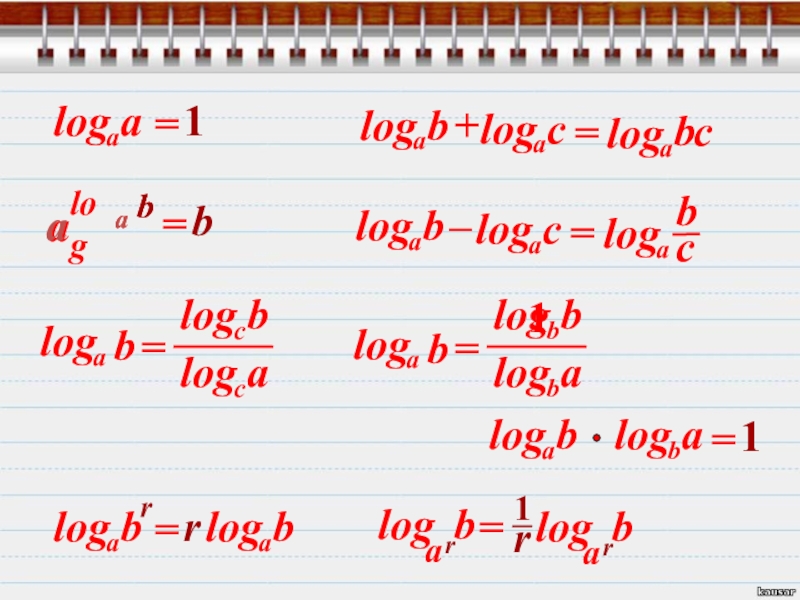 logₐa = 1
logₐb + logₐc = logₐbc
a^(logₐ b) = b
logₐb − logₐc = logₐ b/c
logₐ b = log_c b / log_c a
logₐ b = log_b b 1 / log_b a
logₐb · log_b a = 1
logₐb^r = r logₐb
log_(a^r) b = 1/r log_(a^r) b
kausar